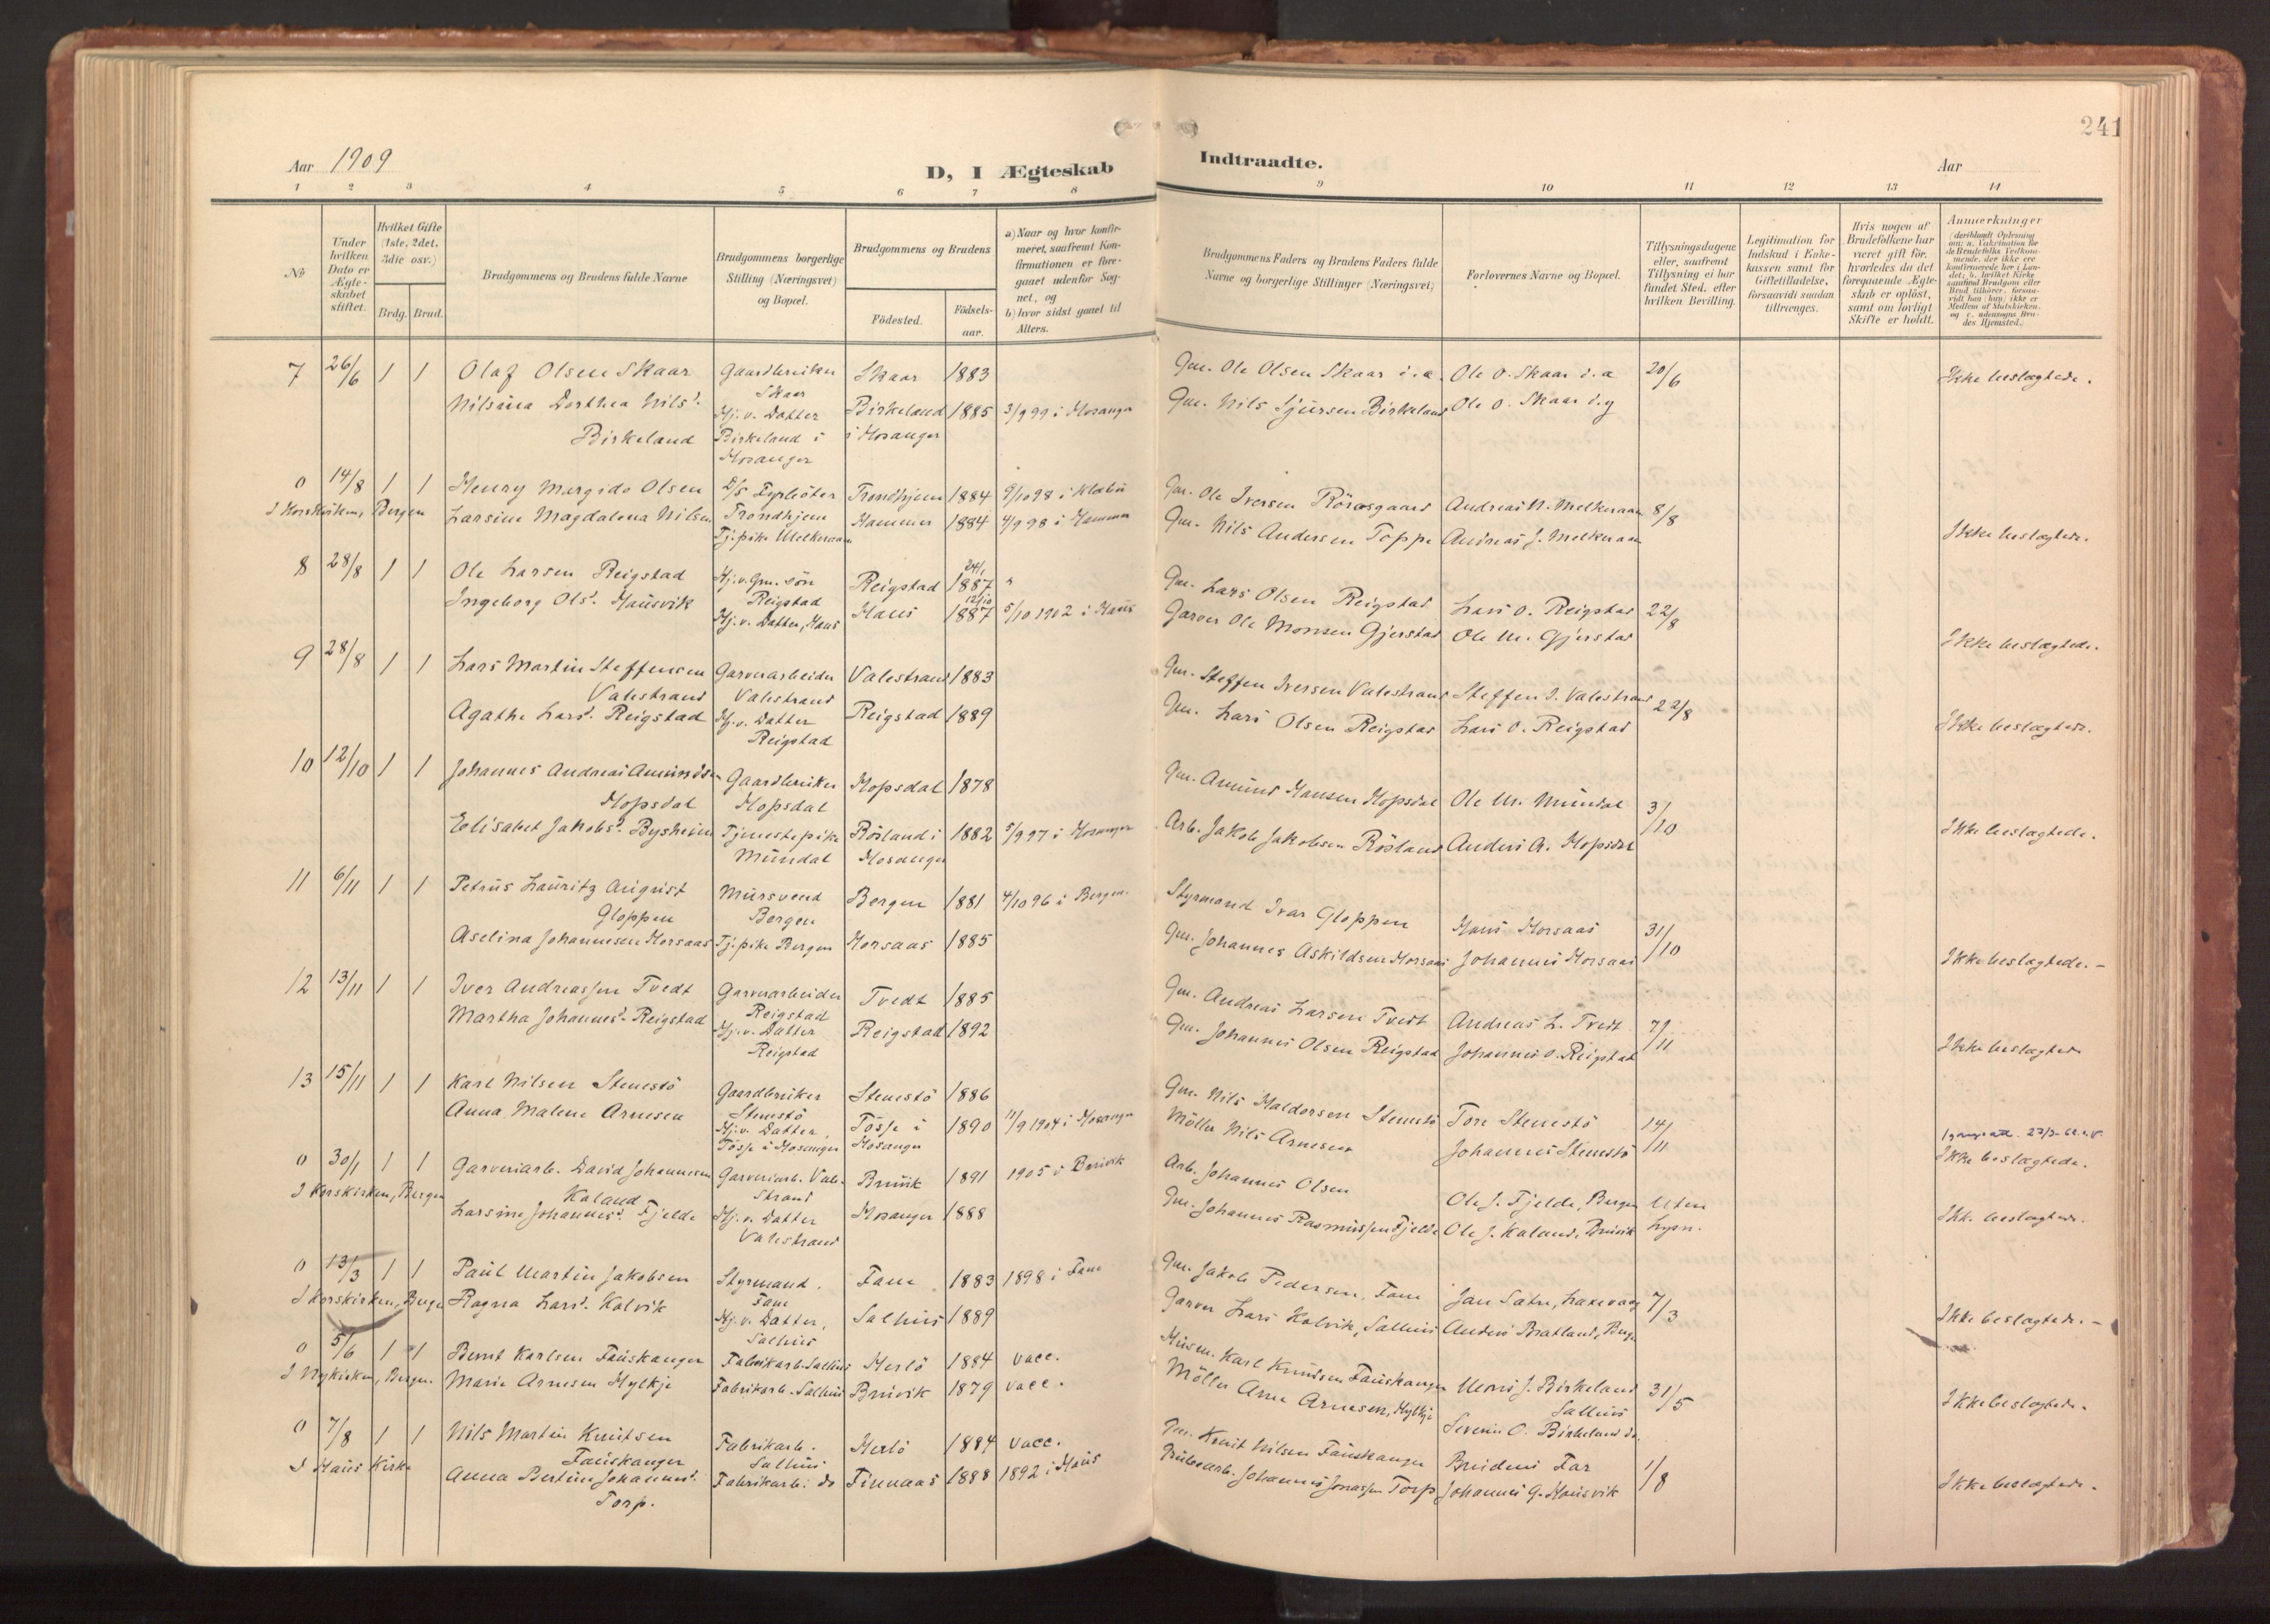 241
Aar 1909
D, I Ægteskab Indtraadte.
Aar
1 2 3 4 5 6 7 8 9 10 11 12 13 14
No
Under hvilken Dato er Ægteskabet stiftet.
Hvilket Gifte (1ste, 2det, 3die osv.)
Brdg. Brud.
Brudgommens og Brudens fulde Navne
Brudgommens borgerlige Stilling (Næringsvei) og Bopæl.
Brudgommens og Brudens
Födested. Födselsaar.
a) Naar og hvor konfirmeret, saafremt Konfirmationen er foregaaet udenfor Sognet, og
b) hvor sidst gaaet til Alters.
Brudgommens Faders og Brudens Faders fulde Navne og borgerlige Stillinger (Næringsvei)
Forlovernes Navne og Bopæl.
Tillysningsdagene eller, saafremt Tillysning ei har fundet Sted, efter hvilken Bevilling.
Legitimation for Indskud i Enkekassen samt for Giftetilladelse, forsaavidt saadan tiltrænges.
Hvis nogen af Brudefolkene har været gift för, hvorledes da det foregaaende Ægteskab er oplöst, samt om lovligt Skifte er holdt.
Anmærkninger
7 26/6 1 1 Olaf Olsen Skaar Gaardbruker Skaar 1883 Gm. Ole Olsen Skaar i.a. Ole O. Skaar i.a 20/6 Ikke beslægtede.
Skaar
Nilsina Dorthea Nilsd. Hj.v. Datter Birkeland 1885 3/9 99 i Hosanger Gm. Nils Sjursen Birkeland Ole O. Skaar i.g
Birkeland Birkeland i i Hosanger
Hosanger
0 14/8 1 1 Henry Margido Olsen D/S Fyrböter Trondhjem 1884 9/10 98 i Klæbu Gm. Ole Iversen Rörosgaard Andreas N. Melkeraaen 8/8 Ikke beslægtede.
I Korskirken, Bergen Larsine Magdalena Nilsen Trondhjem Hammer 1884 4/9 98 i Hammer Gm. Nils Andersen Toppe Andreas J. Melkeraaen
Tj.pike Melkeraaen
8 28/8 1 1 Ole Larsen Reigstad Hj.v. Gm. sön Reigstad 24/1 1887 " Gm. Lars Olsen Reigstad Lars O. Reigstad 22/8 Ikke beslægtede.
Reigstad
Ingeborg Olsd. Hausvik Hj.v. Datter, Haus Haus 12/10 1887 5/10 1902 i Haus Garver Ole Monsen Gjerstad Ole M. Gjerstad
9 28/8 1 1 Lars Martin Steffensen Garverarbeider Valestrand 1883 Gm. Steffen Iversen Valestrand Steffen I. Valestrand 22/8 Ikke beslægtede.
Valestrand Valestrand
Agathe Larsd. Reigstad Hj.v. Datter Reigstad 1889 Gm. Lars Olsen Reigstad Lars O. Reigstad
Reigstad
10 12/10 1 1 Johannes Andreas Amundsen Gaardbruker Hopsdal 1878 Gm. Amund Hansen Hopsdal Ole M. Mundal 3/10 Ikke beslægtede.
Hopsdal Hopsdal
Elisabet Jakobsd. Bysheim Tjenestepike Rösland i 1882 5/9 97 i Hosanger Arb. Jakob Jakobsen Rösland Anders A. Hopsdal
Mundal Hosanger
11 6/11 1 1 Petrus Lauritz August Mursvend Bergen 1881 4/10 96 i Bergen. Styrmand Ivar Gloppen Hans Horsaas 31/10 Ikke beslægtede. -
Gloppen Bergen
Aselina Johannesen Horsaas Tj.pike Bergen Horsaas 1885 Gm. Johannes Askildsen Horsaas Johannes Horsaas
12 13/11 1 1 Iver Andreassen Tvedt Garverarbeider Tvedt 1885 Gm. Andreas Larsen Tvedt Andreas L. Tvedt 7/11 Ikke beslægtede
Reigstad
Martha Johannesd. Reigstad Hj.v. Datter Reigstad 1892 Gm. Johannes Olsen Reigstad Johannes O. Reigstad
Reigstad
13 15/11 1 1 Karl Nilsen Stenestö Gaardbruker Stenestö 1886 Gm. Nils Haldorsen Stenestö Tore Stenestö 14/11 Ikke beslægtede.
Stenestö
Anna Malene Arnesen Hj.v. Datter, Tösse i 1890 11/9 1904 i Hosanger Möller Nils Arnesen Johannes Stenestö
Tösse i Hosanger Hosanger
0 30/1 1 1 Garveriarb. David Johannesen Garveriarb. Vale- Bruvik 1891 1905 i Bruvik Arb. Johannes Olsen Ole J. Fjelde, Bergen Uten Ikke beslægtede.
I Korskirken, Bergen Kaland strand
Larsine Johannesd. Fjelde Hj.v. Datter Hosanger 1888 Gm. Johannes Rasmussen Fjelde Ole J. Kaland, Bruvik lysn.
Valestrand
0 13/3 1 1 Paul Martin Jakobsen Styrmand. Fane 1883 1898 i Fane Gm. Jakob Pedersen, Fane Jan Sætre, Laxevaag 7/3 Ikke beslægtede. -
Fane
I Korskirken, Bergen Ragna Larsd. Kalvik Hj.v. Datter, Salhus 1889 Garver Lars Kalvik, Salhus Anders Bratland, Bergen
Salhus
0 5/6 1 1 Bernt Karlsen Fauskanger Fabrikarb. Salhus Herlö 1884 vacc. Husm. Karl Knudsen Fauskanger Mons J. Birkeland 31/5 Ikke beslægtede.
Salhus
I Nykirken, Bergen. Marie Arnesen Hylkje Fabrikarb. Salhus Bruvik 1879 vacc. Möller Arne Arnesen, Hylkje Severin O. Birkeland do.
0 7/8 1 1 Nils Martin Knutsen Fabrikarb. Herlö 1884 vacc. Gm. Knut Nilsen Fauskanger Brudens Far 1/8 Ikke beslægtede.
Fauskanger Salhus
I Haus Kirke Anna Bertine Johannesd. Fabrikarb. do Finnaas 1888 1892 i Haus Grubearb. Johannes Jonassen Torp Johannes G. Hausvik
Torp.